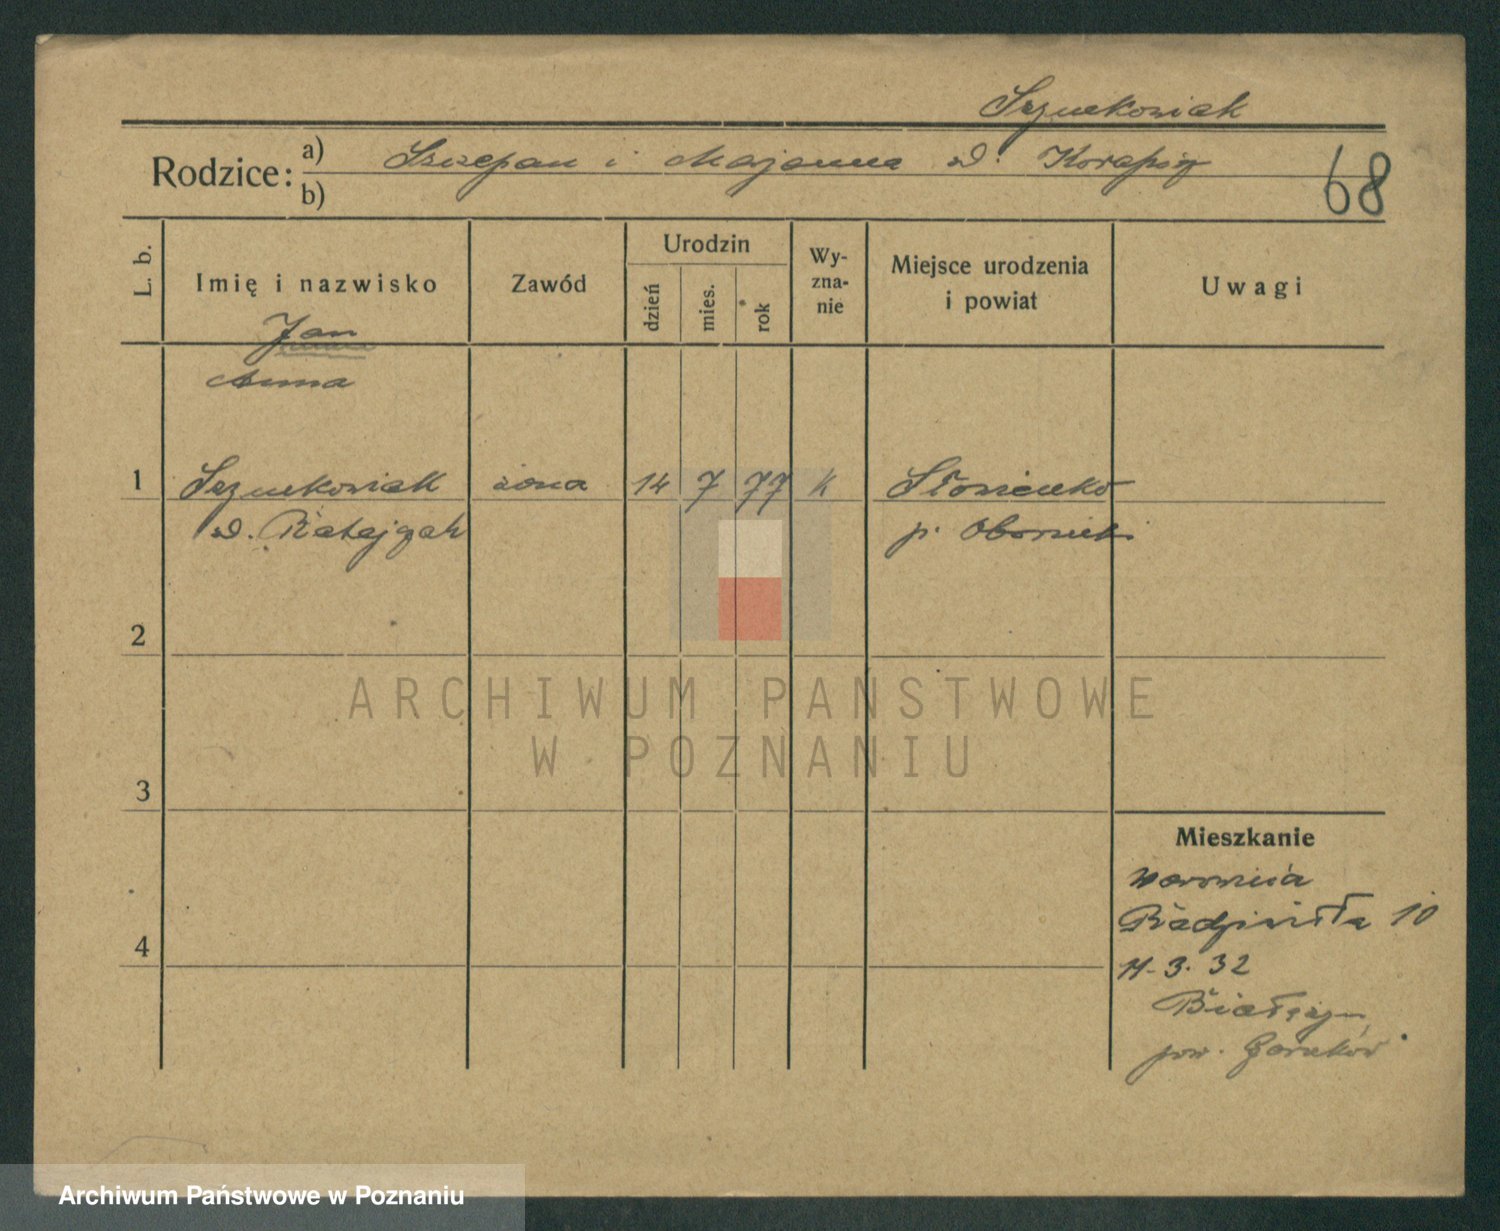 Szymkowiak
Rodzice: a) Szczepan i Marjanna d.
b)
68
L. b.
Imię i nazwisko
Zawód
Urodzin
dzień
mies.
rok
Wy-
zna-
nie
Miejsce urodzenia
i powiat
Uwagi
Jan
Anna
1 Szymkowiak żona 14 7 77 k Słonienko
d. Ratajczak p. Oborniki
2
ARCHIWUM PAŃSTWOWE
W POZNANIU
3
Mieszkanie
10
4
11. 3. 32
pow. 
Archiwum Państwowe w Poznaniu